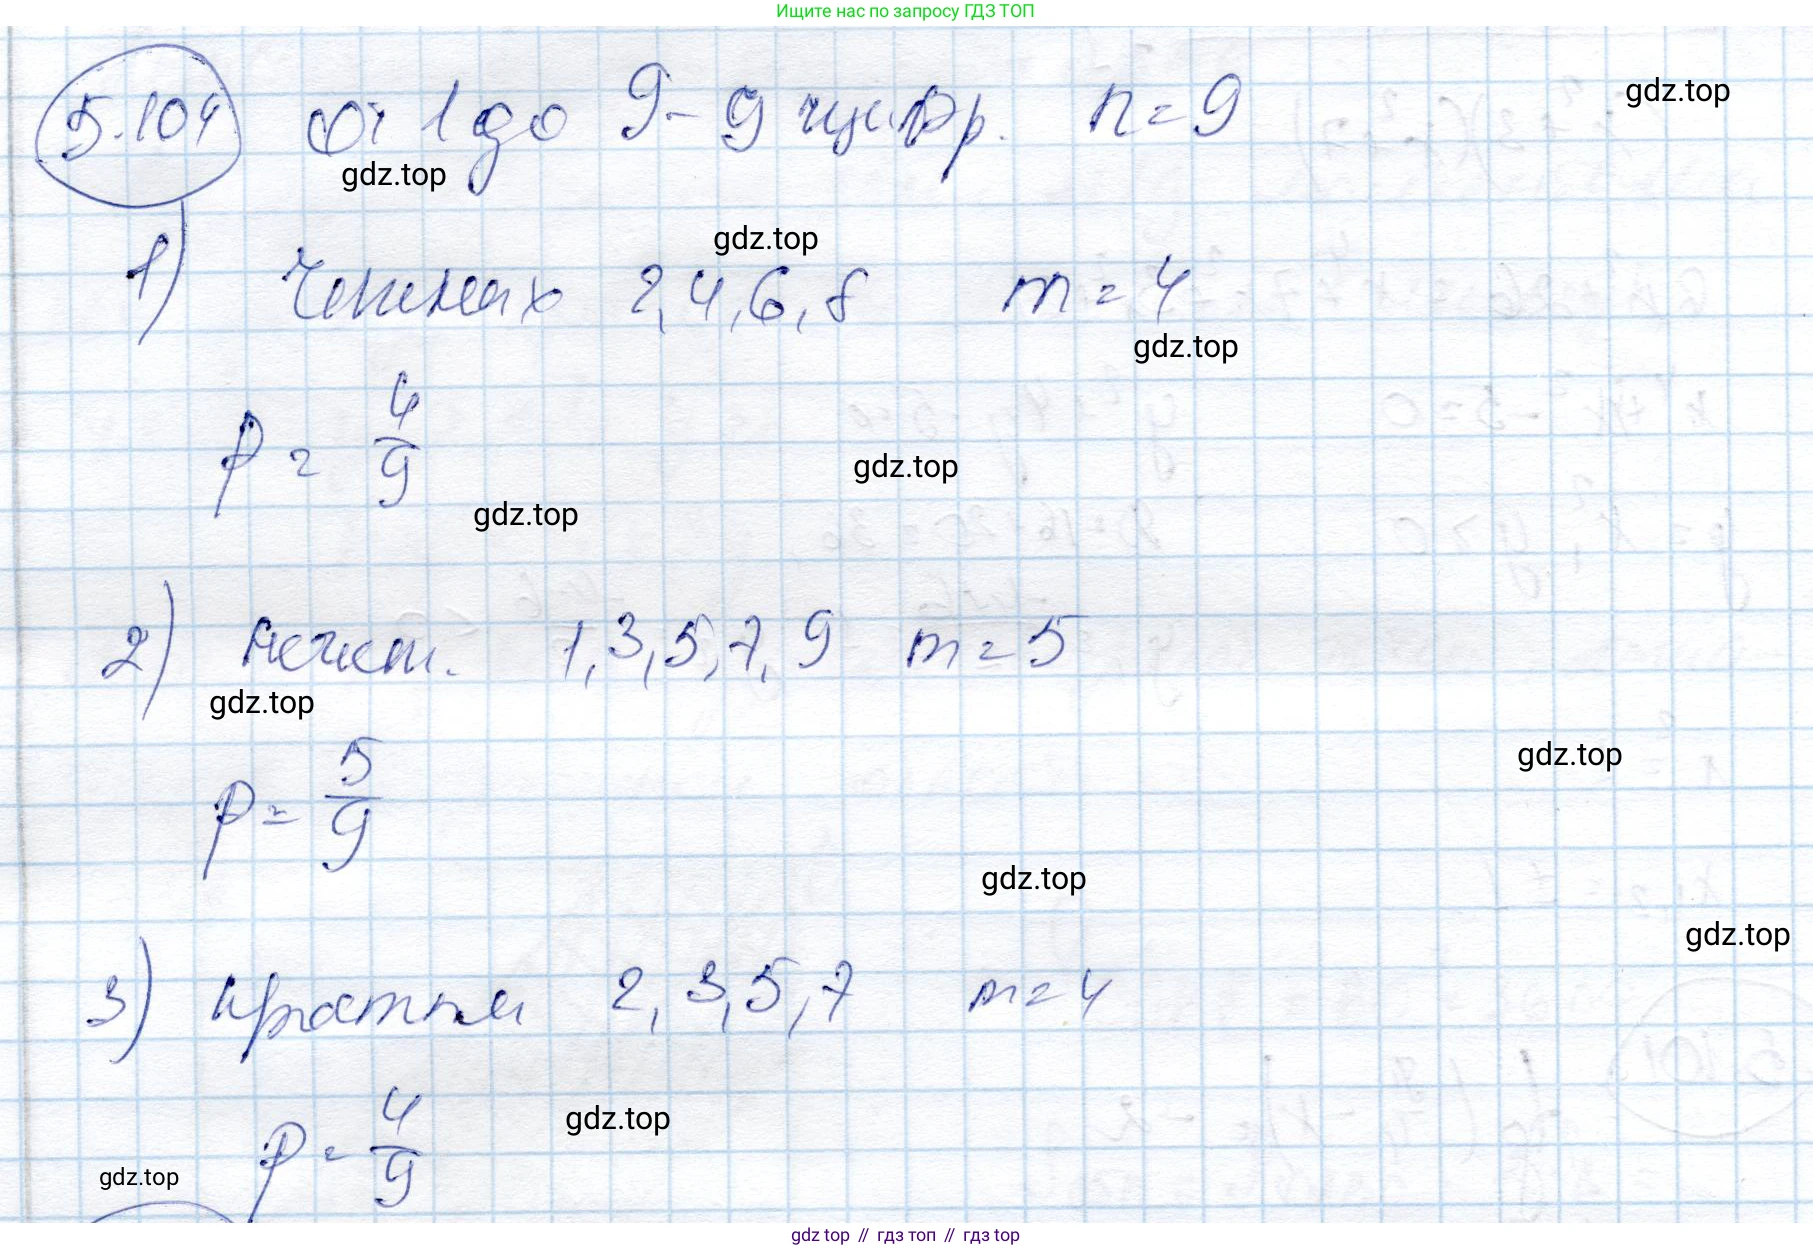 Ищите нас по запросу ГДЗ ТОП
5.104 От 1 до 9 - 9 цифр. n = 9
gdz.top
gdz.top
gdz.top
1) Четных 2, 4, 6, 8 m = 4
gdz.top
P = 4/9
gdz.top
gdz.top
2) нечет. 1, 3, 5, 7, 9 m = 5
gdz.top
gdz.top
P = 5/9
gdz.top
gdz.top
3) 2, 3, 5, 7 m = 4
P = 4/9
gdz.top
gdz.top
gdz top // гдз топ // гдз top